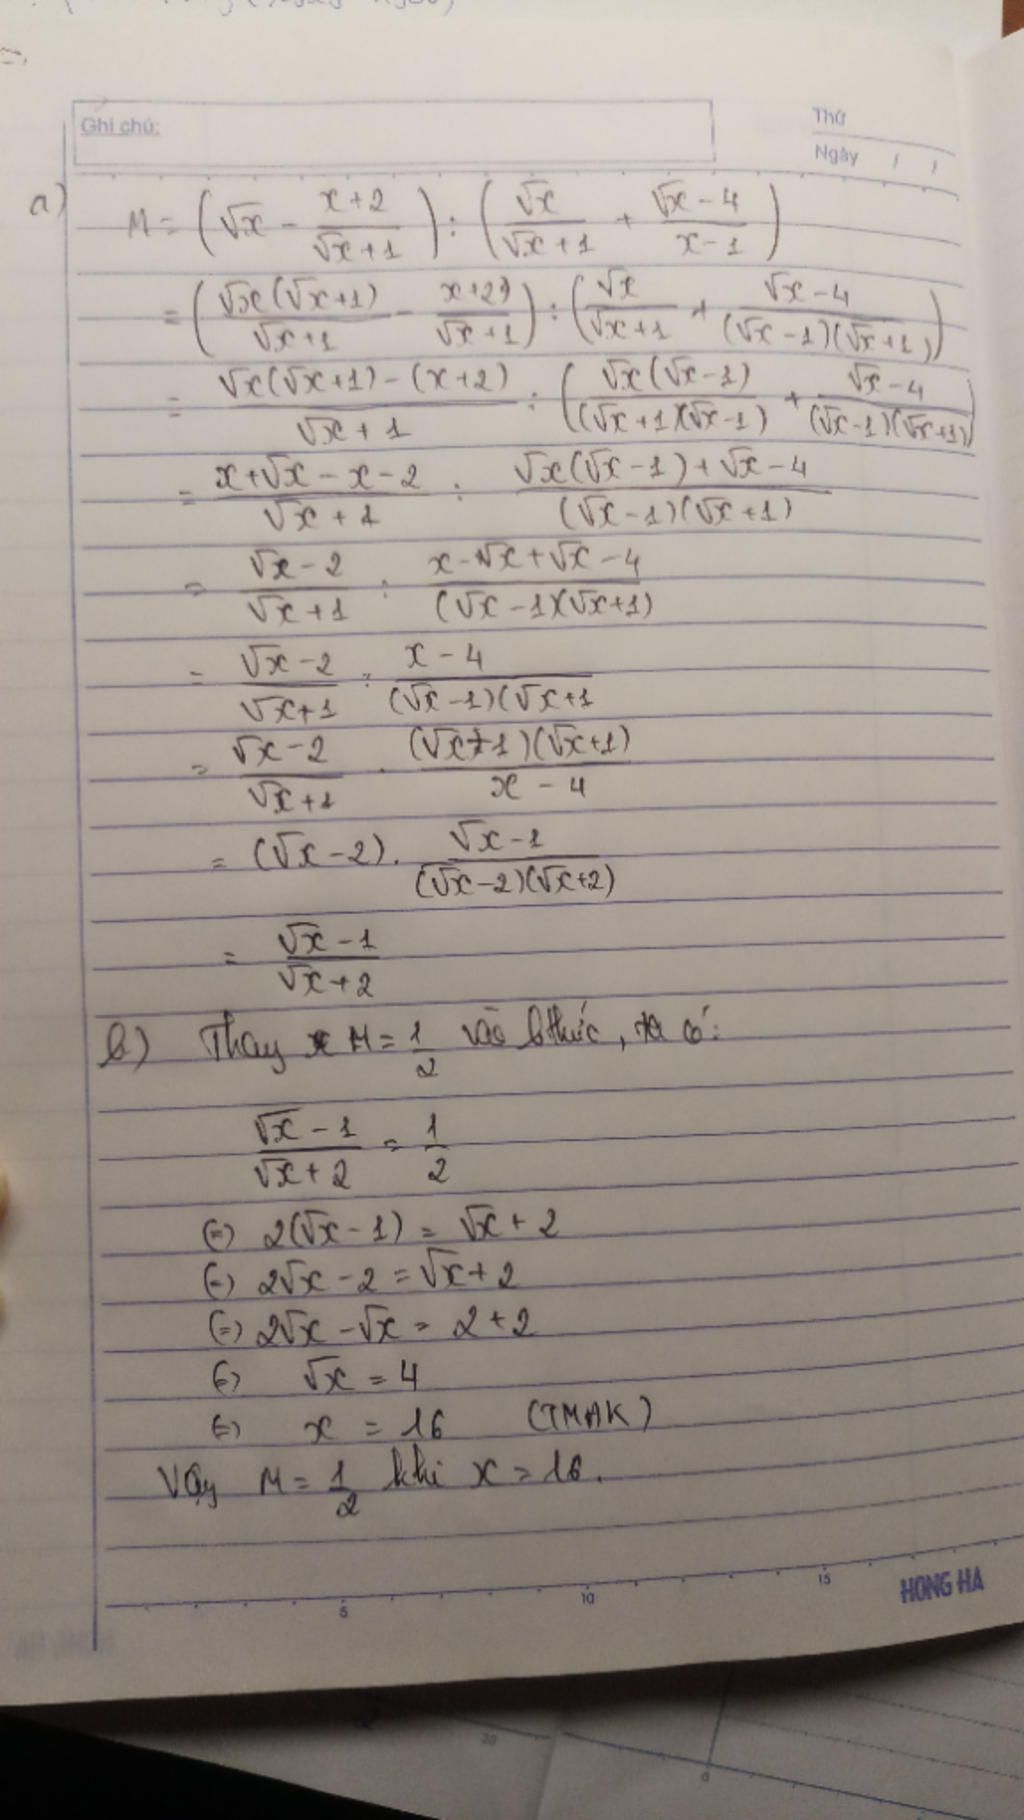 Ghi chú:
Thứ
Ngày / /
a) M = (√x - (x+2)/(√x+1)) : (√x/(√x+1) + (√x-4)/(x-1))
= (√x(√x+1)/(√x+1) - (x+2)/(√x+1)) : (√x/(√x+1) + (√x-4)/((√x-1)(√x+1)))
= (√x(√x+1)-(x+2))/(√x+1) : (√x(√x-1)/((√x+1)(√x-1)) + (√x-4)/((√x-1)(√x+1)))
= (x+√x-x-2)/(√x+1) : (√x(√x-1)+√x-4)/((√x-1)(√x+1))
= (√x-2)/(√x+1) : (x-√x+√x-4)/((√x-1)(√x+1))
= (√x-2)/(√x+1) : (x-4)/((√x-1)(√x+1
= (√x-2)/(√x+1) . ((√x-1)(√x+1))/(x-4)
= (√x-2) . (√x-1)/((√x-2)(√x+2))
= (√x-1)/(√x+2)
b) Thay M = 1/2 vào bthức, ta có:
(√x-1)/(√x+2) = 1/2
(=) 2(√x-1) = √x+2
(=) 2√x-2 = √x+2
(=) 2√x-√x = 2+2
(=) √x = 4
(=) x = 16 (TMĐK)
Vậy M = 1/2 khi x = 16.
5 10 15
HONG HA